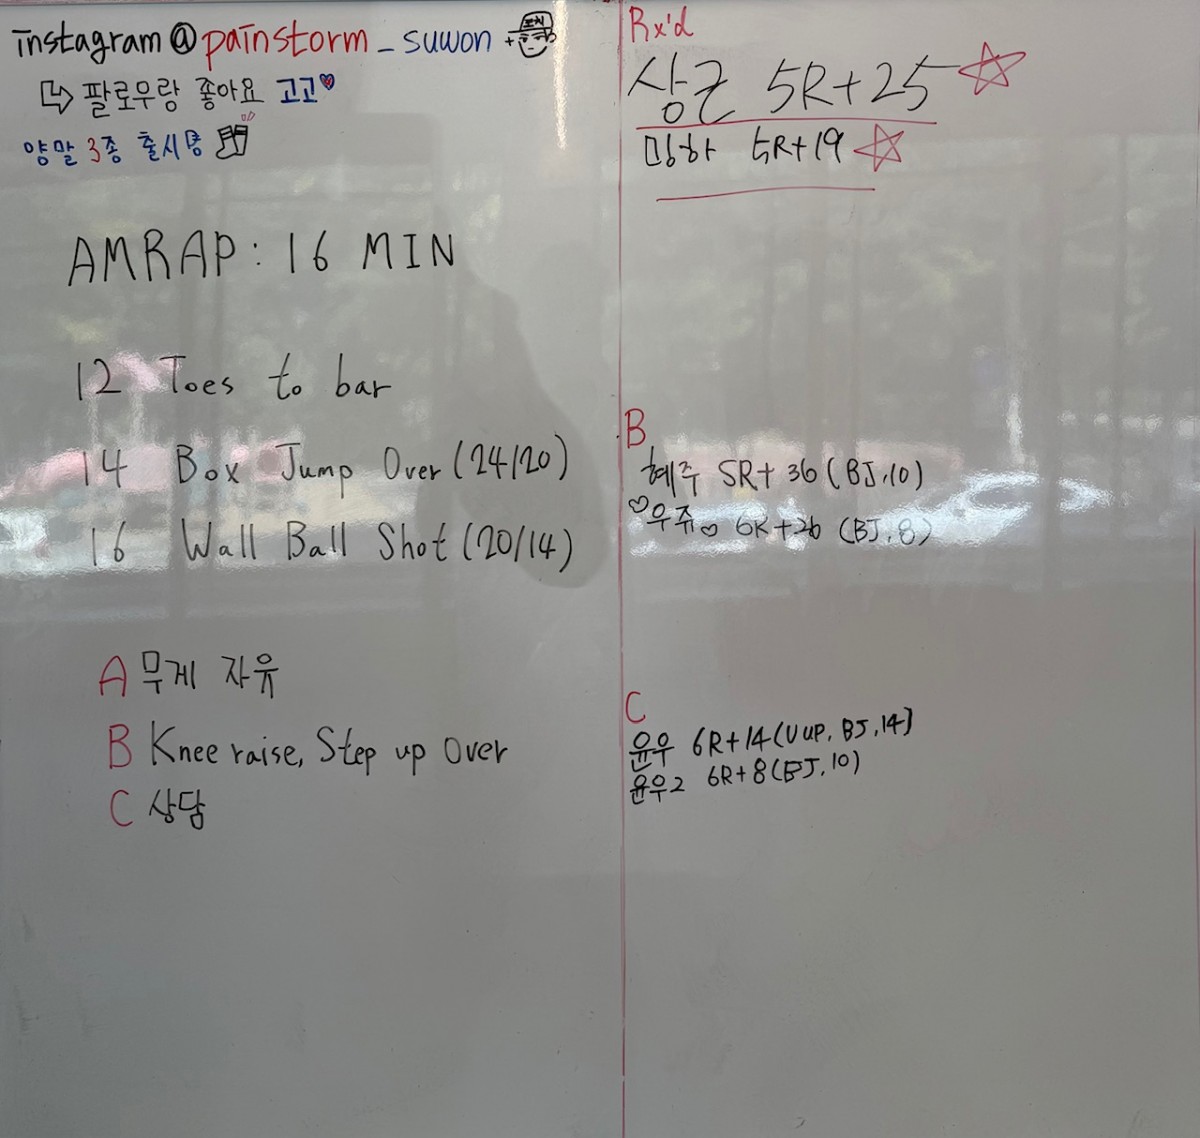 instagram@painstorm_suwon
팔로우랑 좋아요 고고
양말 3종 출시
AMRAP: 16 MIN
12 Toes to bar
14 Box Jump Over (24/20)
16 Wall Ball Shot (20/14)
A 무게 자유
B Knee raise, Step up over
C 상담
Rx'd
상근 5R+25
5R+19
B
혜주 5R+36 (BJ.10)
우쥬 6R+26 (BJ.8)
C
윤우 6R+14 (V up, BJ.14)
윤우2 6R+8 (BJ.10)